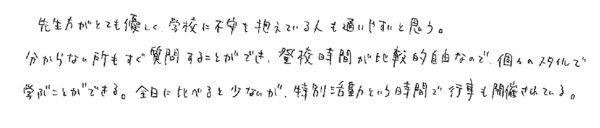 先生方がとても優しく、学校に不安を抱えている人も通いやすいと思う。
分からない所もすぐ質問することができ、登校時間が比較的自由なので、個々のスタイルで
学ぶことができる。全日に比べると少ないが、特別活動という時間で行事も開催されている。